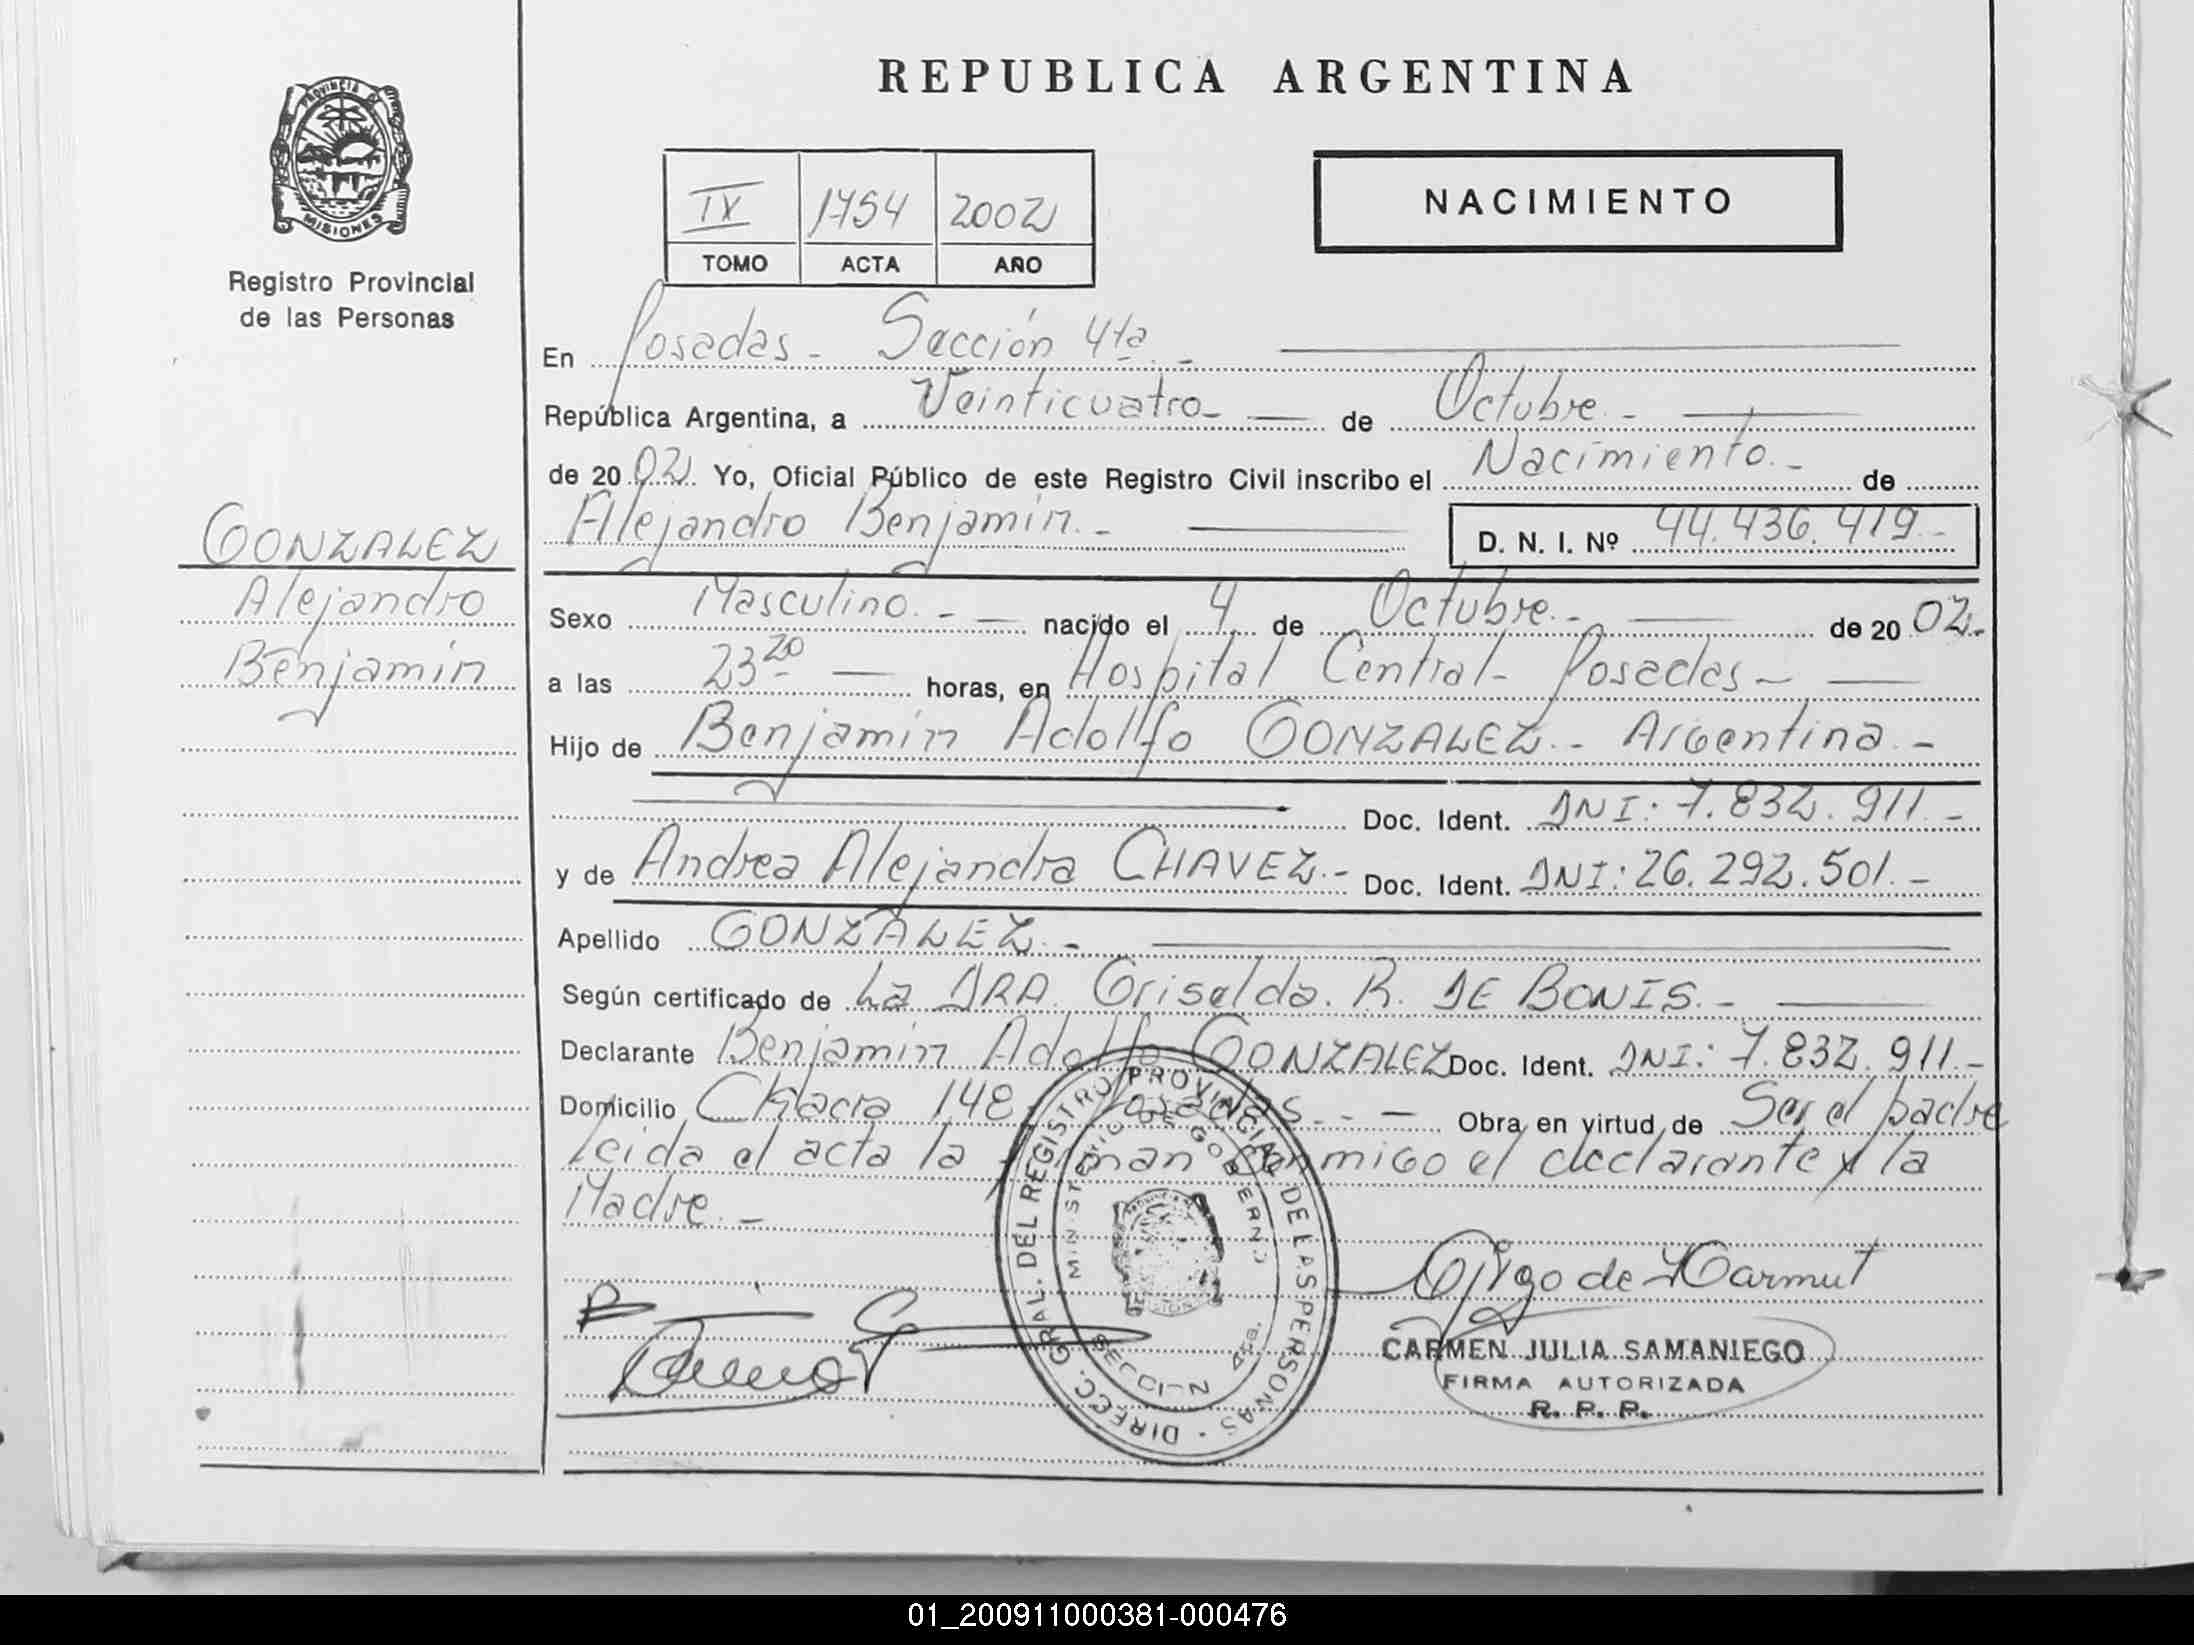 REPUBLICA ARGENTINA
PROVINCIA DE
MISIONES
Registro Provincial
de las Personas
IX 1754 2002
TOMO ACTA AÑO
NACIMIENTO
En Posadas - Sección 4ta. -
República Argentina, a Veinticuatro - de Octubre. -
de 2002 Yo, Oficial Público de este Registro Civil inscribo el Nacimiento. - de
Alejandro Benjamín. - D. N. I. Nº 44.436.419.-
GONZALEZ
Alejandro
Benjamín
Sexo Masculino. - nacido el 4 de Octubre. - de 2002.
a las 23 20 horas, en Hospital Central - Posadas -
Hijo de Benjamín Adolfo GONZALEZ. - Argentina. -
Doc. Ident. DNI: 7.832.911. -
y de Andrea Alejandra CHAVEZ. - Doc. Ident. DNI: 26.292.501. -
Apellido GONZALEZ. -
Según certificado de La DRA. Griselda. R. DE BONIS. -
Declarante Benjamín Adolfo GONZALEZ Doc. Ident. DNI: 7.832.911. -
Domicilio 148 - Posadas. - Obra en virtud de Ser el padre
leida el acta la firman conmigo el declarante y la
Madre. -
DIREC. GRAL. DEL REGISTRO PROVINCIAL DE LAS PERSONAS
MINISTERIO DE GOBIERNO
SECCION 4ta.
CARMEN JULIA SAMANIEGO
FIRMA AUTORIZADA
R. P. P.
01_200911000381-000476